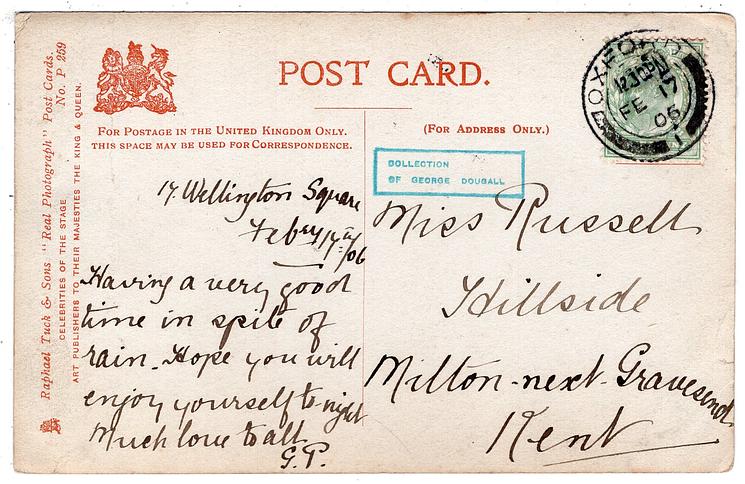 POST CARD.
FOR POSTAGE IN THE UNITED KINGDOM ONLY.
THIS SPACE MAY BE USED FOR CORRESPONDENCE.
(FOR ADDRESS ONLY.)
Raphael Tuck & Sons "Real Photograph" Post Cards.
No. P 259
CELEBRITIES OF THE STAGE.
ART PUBLISHERS TO THEIR MAJESTIES THE KING & QUEEN.
OXFORD
FE 17
06
1
COLLECTION
OF GEORGE DOUGALL
17. Wellington Square
Febry 17th/06
Having a very good
time in spite of
rain. Hope you will
enjoy yourself to-night
Much love to all
G.P.
Miss Russell
Hillside
Milton-next-Gravesend
Kent